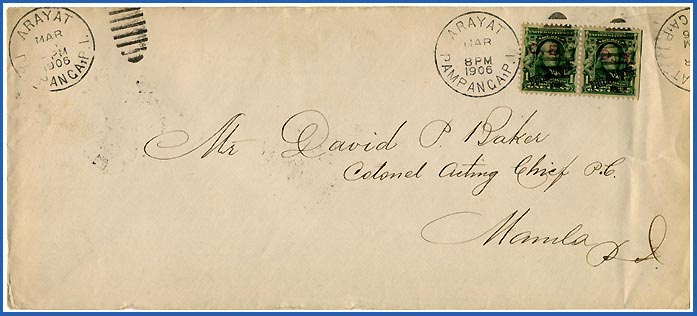 ARAYAT
MAR
PM
1906
PAMPANGA, P.I.
ARAYAT
MAR
8 PM
1906
PAMPANGA, P.I.
Mr David P. Baker
Colonel Acting Chief P.C.
Manila P. I.